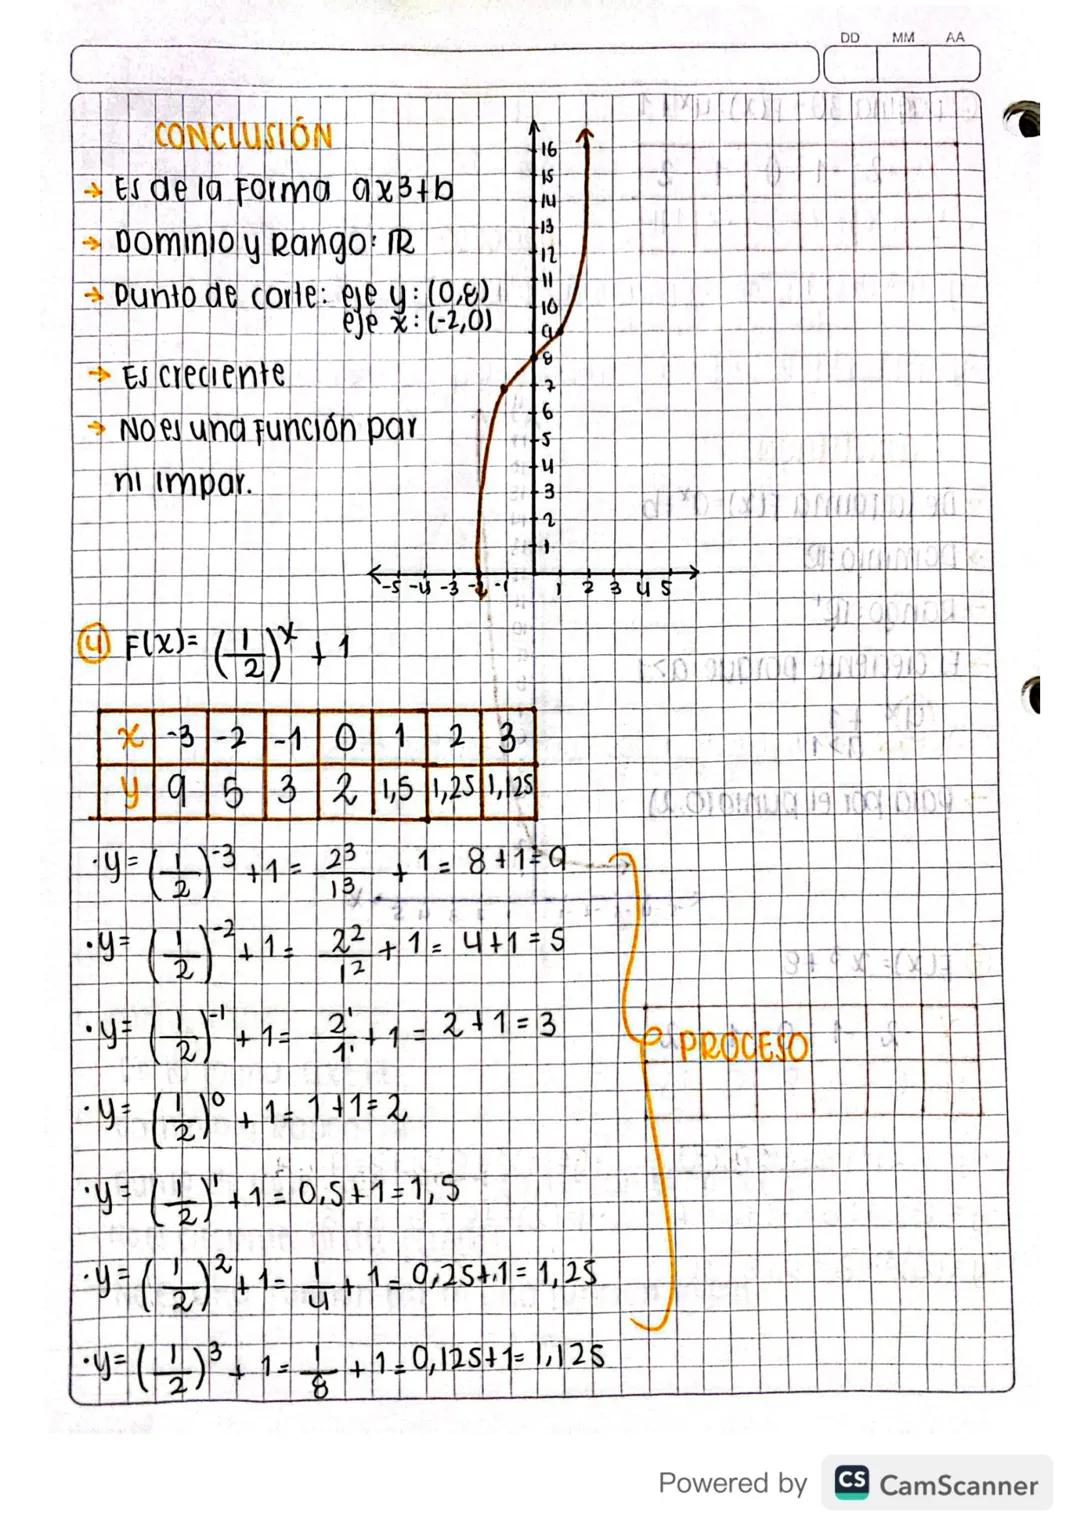 DD MM AA
CONCLUSIÓN
→ Es de la forma ax3+b
→ Dominio y Rango: ℝ
→ Punto de corte: eje y: (0,8)
eje x: (-2,0)
→ Es creciente
→ No es una función par
ni impar.
16
15
14
13
12
11
10
9
8
7
6
5
4
3
2
1
-5 -4 -3 -2 -1 1 2 3 4 5
④ F(x)= (1/2)^x + 1
x -3 -2 -1 0 1 2 3
y 9 5 3 2 1,5 1,25 1,125
·y= (1/2)^-3 +1 = 2^3/1^3 + 1 = 8+1=9
·y= (1/2)^-2 + 1= 2^2/1^2 + 1 = 4+1=5
·y= (1/2)^-1 + 1= 2^1/1^1 + 1 = 2+1=3
PROCESO
·y= (1/2)^0 + 1= 1+1=2
·y= (1/2)^1 +1= 0,5+1=1,5
·y= (1/2)^2 + 1= 1/4 + 1= 0,25+1= 1,25
·y= (1/2)^3 + 1= 1/8 + 1= 0,125+1= 1,125
Powered by CS CamScanner